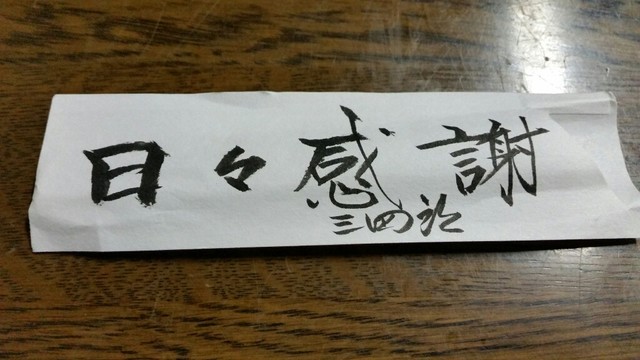 日々感謝
三四郎